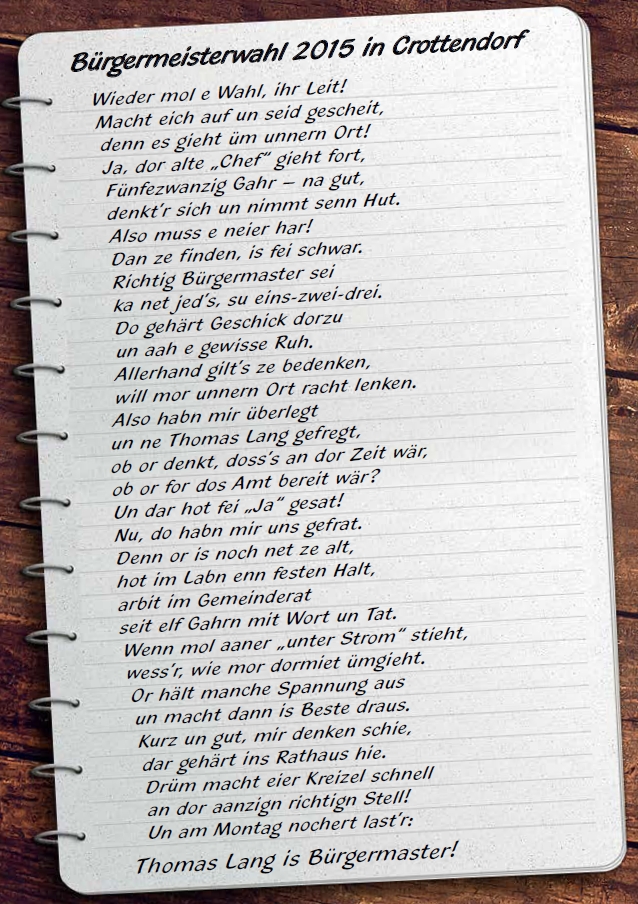 Bürgermeisterwahl 2015 in Crottendorf
Wieder mol e Wahl, ihr Leit!
Macht eich auf un seid gescheit,
denn es gieht üm unnern Ort!
Ja, dor alte „Chef“ gieht fort,
Fünfezwanzig Gahr – na gut,
denkt’r sich un nimmt senn Hut.
Also muss e neier har!
Dan ze finden, is fei schwar.
Richtig Bürgermaster sei
ka net jed’s, su eins-zwei-drei.
Do gehärt Geschick dorzu
un aah e gewisse Ruh.
Allerhand gilt’s ze bedenken,
will mor unnern Ort racht lenken.
Also habn mir überlegt
un ne Thomas Lang gefregt,
ob or denkt, doss’s an dor Zeit wär,
ob or for dos Amt bereit wär?
Un dar hot fei „Ja“ gesat!
Nu, do habn mir uns gefrat.
Denn or is noch net ze alt,
hot im Labn enn festen Halt,
arbit im Gemeinderat
seit elf Gahrn mit Wort un Tat.
Wenn mol aaner „unter Strom“ stieht,
wess’r, wie mor dormiet ümgieht.
Or hält manche Spannung aus
un macht dann is Beste draus.
Kurz un gut, mir denken schie,
dar gehärt ins Rathaus hie.
Drüm macht eier Kreizel schnell
an dor aanzign richtign Stell!
Un am Montag nochert last’r:
Thomas Lang is Bürgermaster!